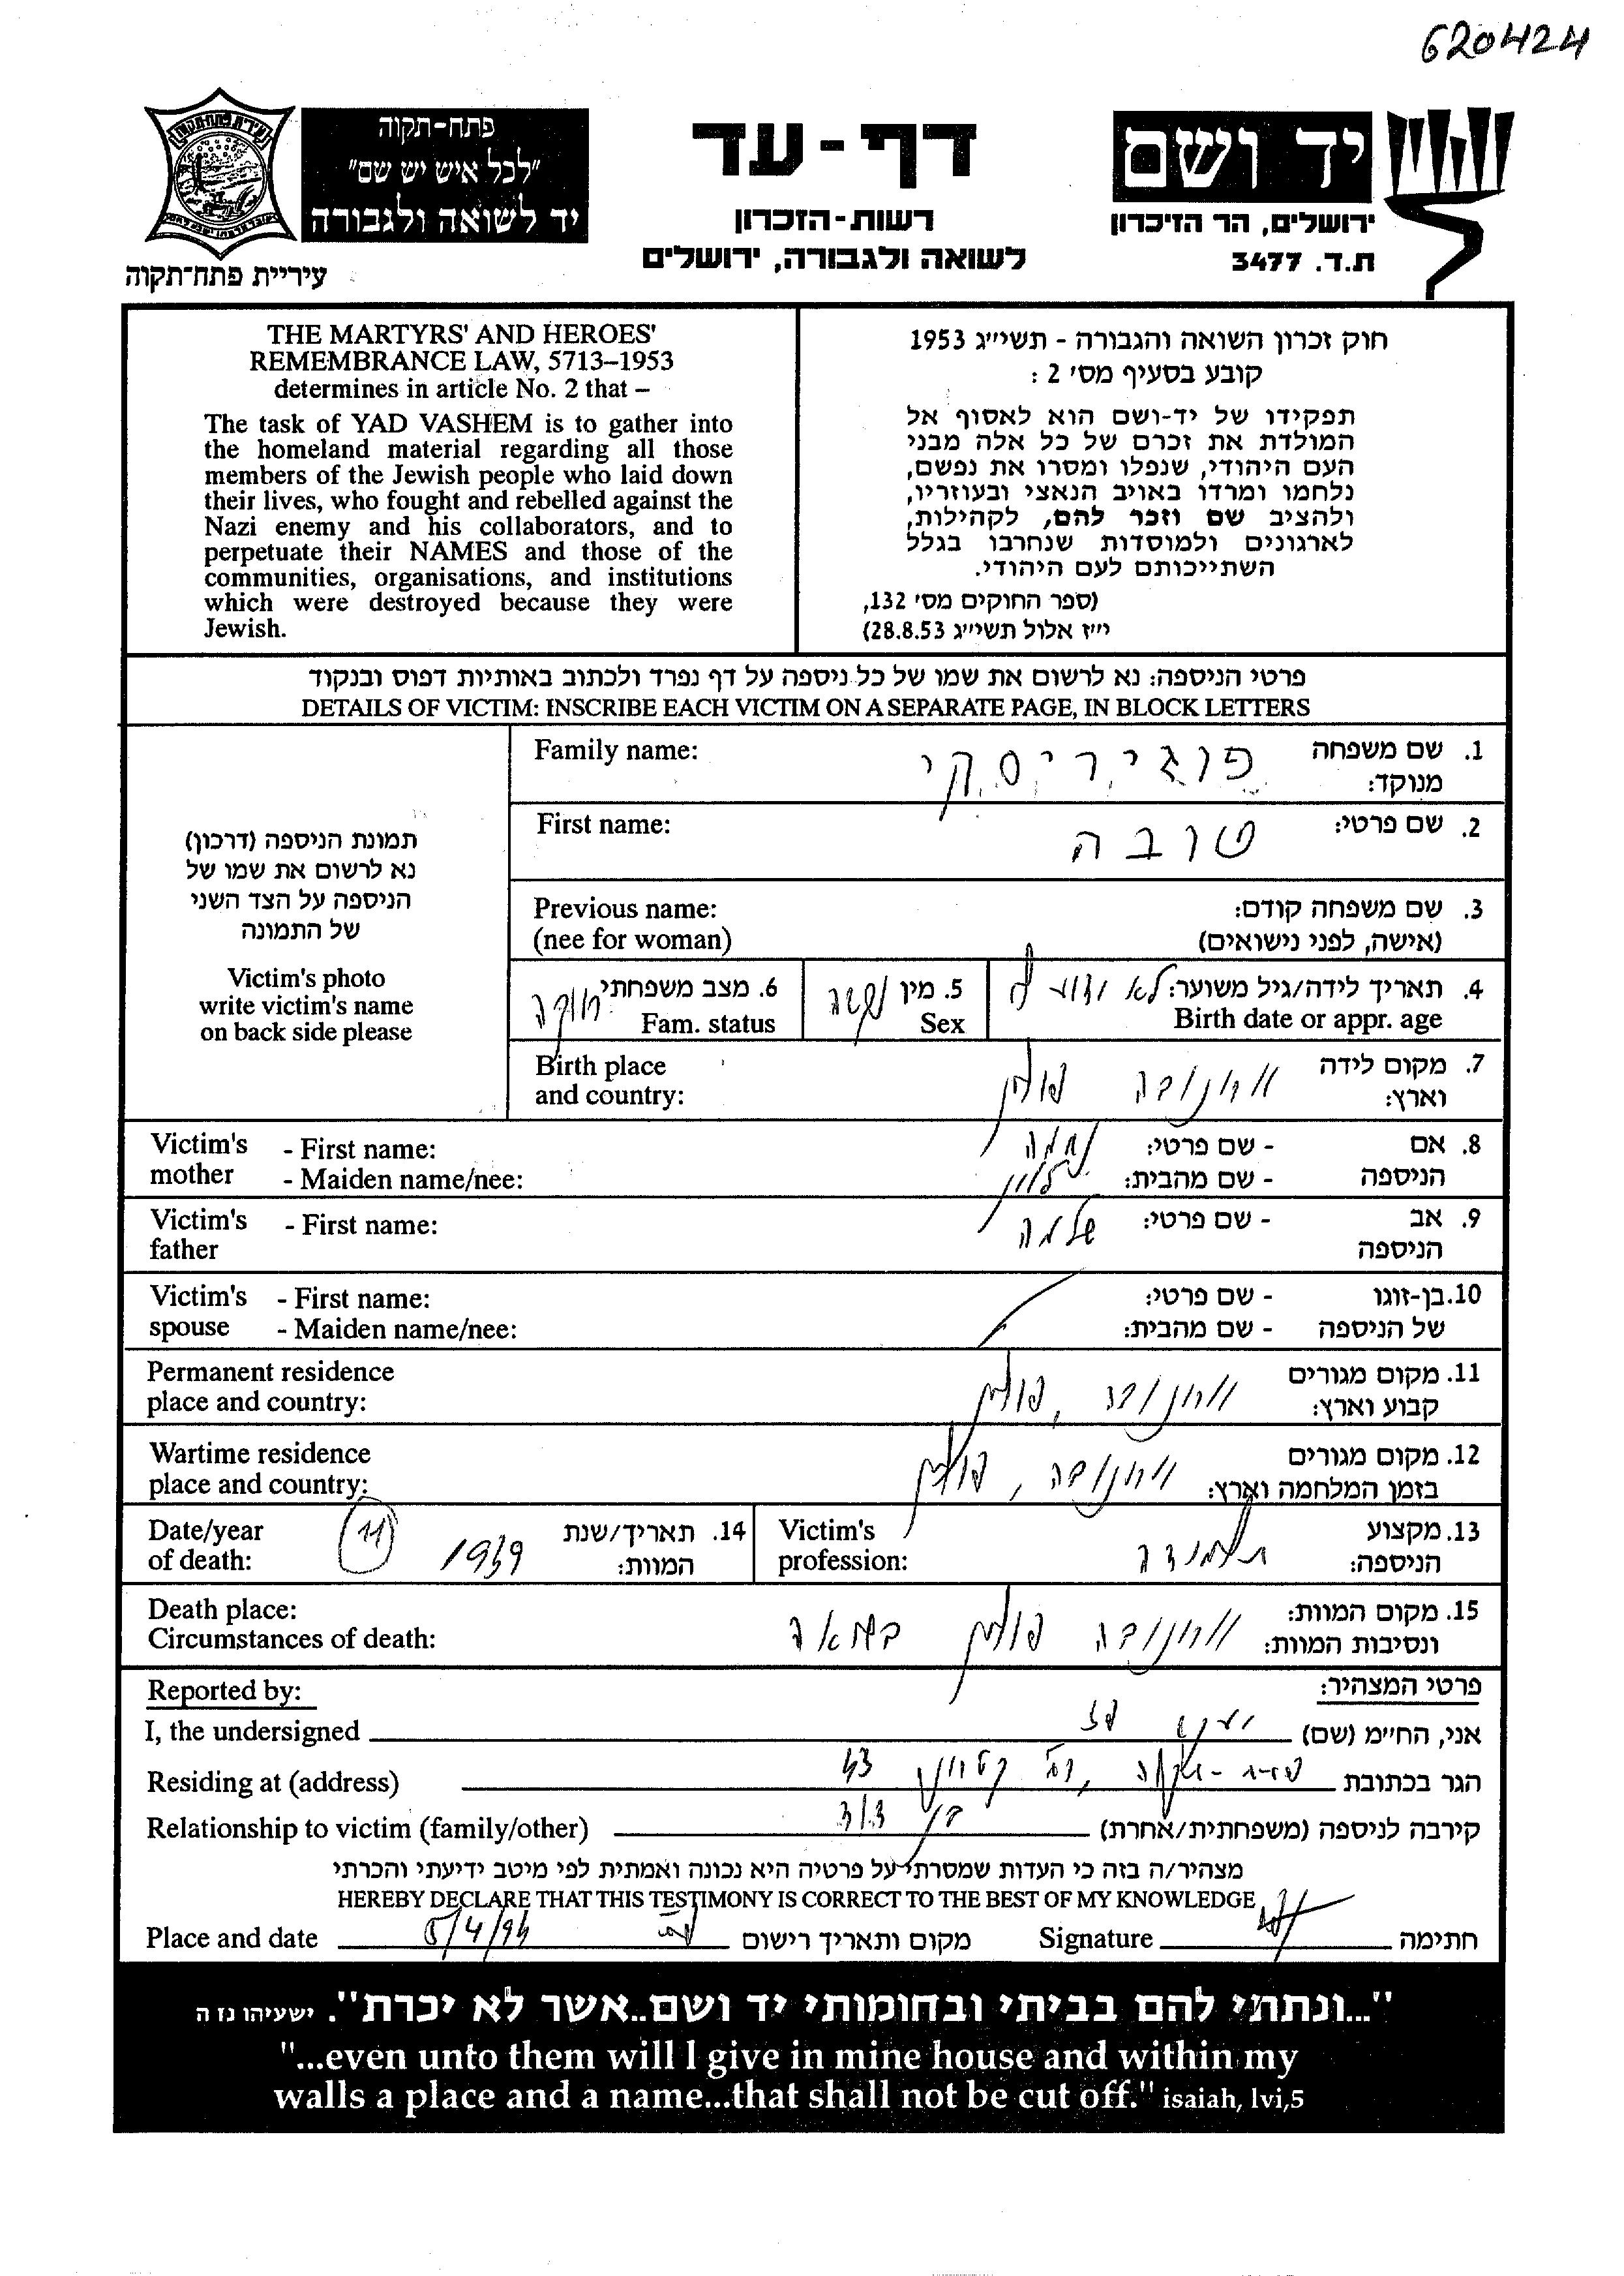 620424
פתח-תקוה
"לכל איש יש שם"
יד לשואה ולגבורה
עיריית פתח-תקוה
דף-עד
רשות-הזכרון
לשואה ולגבורה, ירושלים
יד ושם
ירושלים, הר הזיכרון
ת.ד. 3477
THE MARTYRS' AND HEROES'
REMEMBRANCE LAW, 5713-1953
determines in article No. 2 that –
The task of YAD VASHEM is to gather into
the homeland material regarding all those
members of the Jewish people who laid down
their lives, who fought and rebelled against the
Nazi enemy and his collaborators, and to
perpetuate their NAMES and those of the
communities, organisations, and institutions
which were destroyed because they were
Jewish.
חוק זכרון השואה והגבורה - תשי"ג 1953
קובע בסעיף מס' 2 :
תפקידו של יד-ושם הוא לאסוף אל
המולדת את זכרם של כל אלה מבני
העם היהודי, שנפלו ומסרו את נפשם,
נלחמו ומרדו באויב הנאצי ובעוזריו,
ולהציב שם וזכר להם, לקהילות,
לארגונים ולמוסדות שנחרבו בגלל
השתייכותם לעם היהודי.
(ספר החוקים מס' 132,
י"ז אלול תשי"ג 28.8.53)
פרטי הניספה: נא לרשום את שמו של כל ניספה על דף נפרד ולכתוב באותיות דפוס ובנקוד
DETAILS OF VICTIM: INSCRIBE EACH VICTIM ON A SEPARATE PAGE, IN BLOCK LETTERS
תמונת הניספה (דרכון)
נא לרשום את שמו של
הניספה על הצד השני
של התמונה
Victim's photo
write victim's name
on back side please
1. שם משפחה פוגירסקי Family name:
מנוקד:
2. שם פרטי: טובה First name:
3. שם משפחה קודם: Previous name:
(אישה, לפני נישואים) (nee for woman)
4. תאריך לידה/גיל משוער: לא ידוע
Birth date or appr. age
5. מין נקבה
Sex
6. מצב משפחתי רווקה
Fam. status
7. מקום לידה Birth place
וארץ: פולין and country:
8. אם - שם פרטי: נחמה Victim's - First name:
הניספה - שם מהבית: mother - Maiden name/nee:
9. אב - שם פרטי: שלמה Victim's - First name:
הניספה father
10. בן-זוגו - שם פרטי: Victim's - First name:
של הניספה - שם מהבית: spouse - Maiden name/nee:
11. מקום מגורים Permanent residence
קבוע וארץ: פולין place and country:
12. מקום מגורים Wartime residence
בזמן המלחמה וארץ: , פולין place and country:
13. מקצוע Victim's
הניספה: תלמידה profession:
14. תאריך/שנת Date/year
המוות: 1939 11 of death:
15. מקום המוות: Death place:
ונסיבות המוות: פולין בשואה Circumstances of death:
פרטי המצהיר: Reported by:
אני, הח"מ (שם) יעקב פז I, the undersigned
הגר בכתובת פתח-תקוה, 43 Residing at (address)
קירבה לניספה (משפחתית/אחרת) בן דוד Relationship to victim (family/other)
מצהיר/ה בזה כי העדות שמסרתי על פרטיה היא נכונה ואמתית לפי מיטב ידיעתי והכרתי
HEREBY DECLARE THAT THIS TESTIMONY IS CORRECT TO THE BEST OF MY KNOWLEDGE
חתימה Signature מקום ותאריך רישום Place and date
"...ונתתי להם בביתי ובחומותי יד ושם..אשר לא יכרת". ישעיהו נז ה
"...even unto them will I give in mine house and within my
walls a place and a name...that shall not be cut off." isaiah, lvi,5